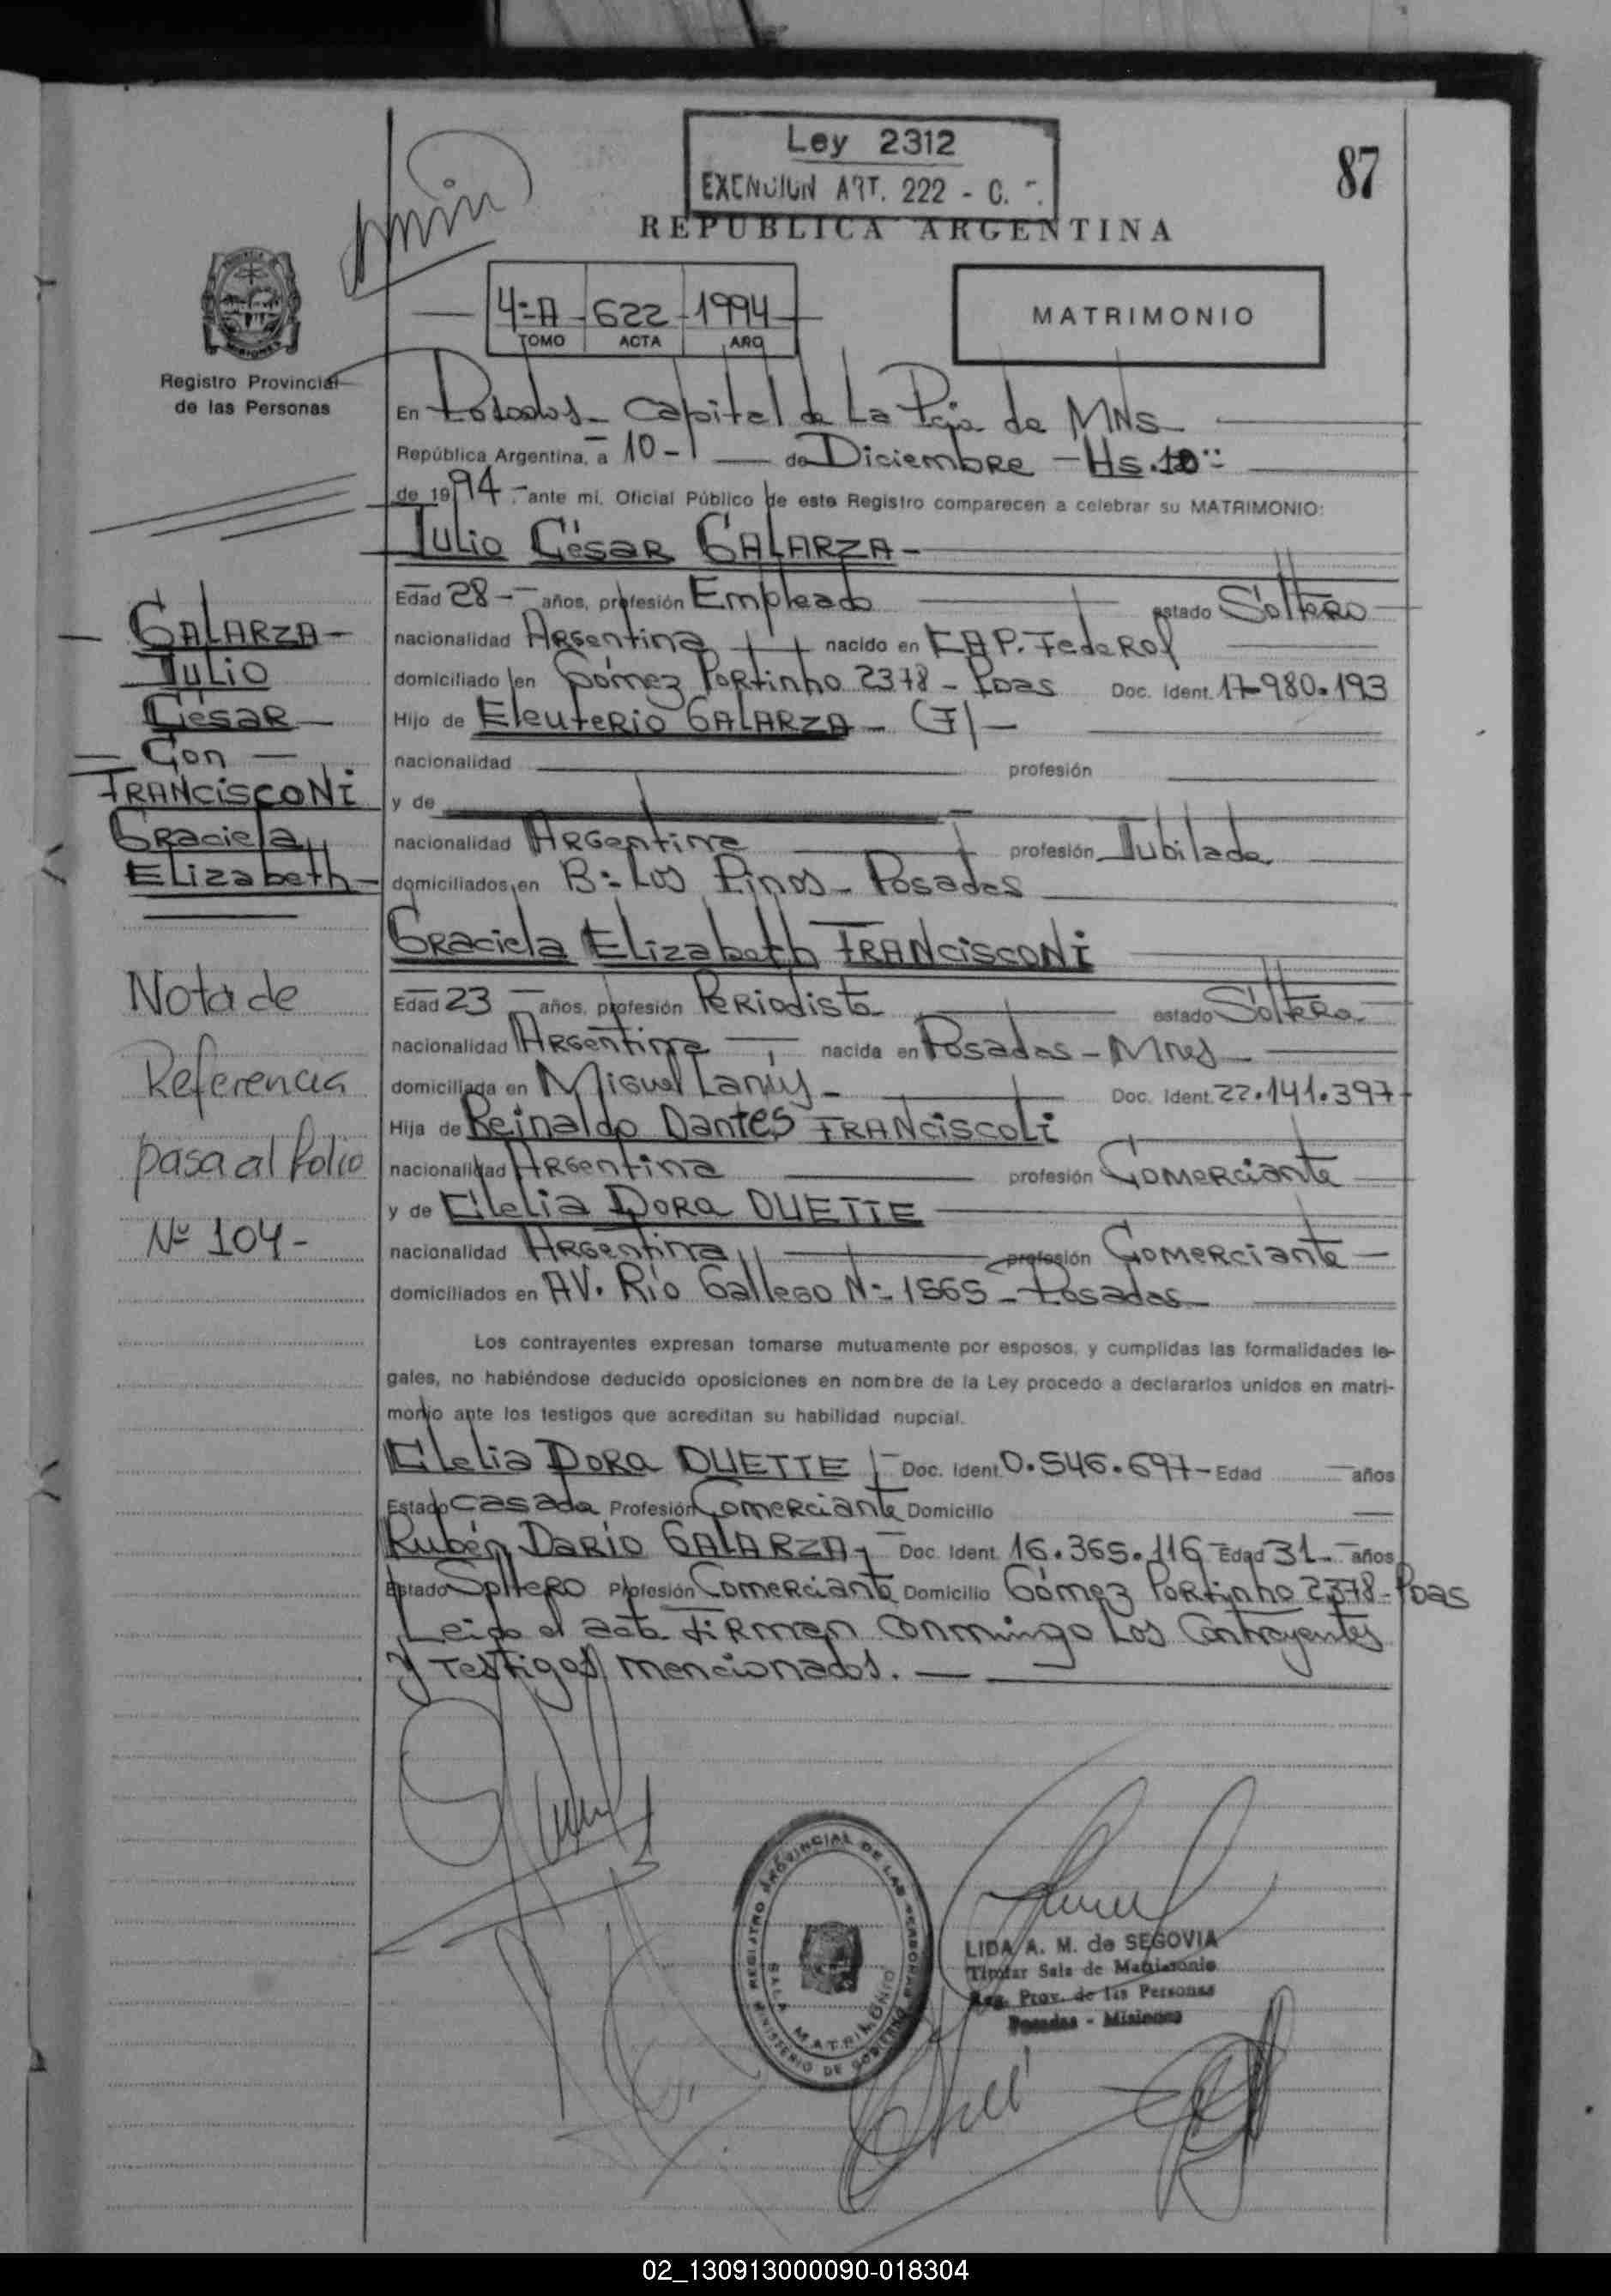 Ley 2312
EXENCION ART. 222 - C.
87
REPUBLICA ARGENTINA
4=A - 622 - 1994
TOMO ACTA AÑO
MATRIMONIO
Registro Provincial
de las Personas
En Posadas - Capital de La Pcia de MNS
República Argentina, a 10 - de Diciembre - Hs. 10
de 1994 - ante mí, Oficial Público de este Registro comparecen a celebrar su MATRIMONIO:
Julio César GALARZA -
Edad 28 - años, profesión Empleado estado Soltero
nacionalidad Argentina nacido en CAP. Federal
domiciliado en Gómez Portinho 2378 - Pdas Doc. Ident. 17.980.193
Hijo de Eleuterio GALARZA - (F) -
nacionalidad profesión
y de
nacionalidad Argentina profesión Jubilada
domiciliados en B= Los Pinos - Posadas
Graciela Elizabeth FRANCISCONI
Edad 23 - años, profesión Periodista estado Soltera
nacionalidad Argentina nacida en Posadas - Mnes
domiciliada en Miguel Lanús - Doc. Ident. 22.141.397
Hija de Reinaldo Dantes FRANCISCOLI
nacionalidad Argentina profesión Comerciante
y de Clelia Dora DUETTE
nacionalidad Argentina profesión Comerciante
domiciliados en AV. Río Gallego N= 1565 - Posadas
Los contrayentes expresan tomarse mutuamente por esposos, y cumplidas las formalidades le-
gales, no habiéndose deducido oposiciones en nombre de la Ley procedo a declararlos unidos en matri-
monio ante los testigos que acreditan su habilidad nupcial.
Clelia Dora DUETTE - Doc. Ident. 0.546.697 - Edad años
Estado Casada Profesión Comerciante Domicilio
Rubén Darío GALARZA - Doc. Ident. 16.365.116 Edad 31 - años
Estado Soltero Profesión Comerciante Domicilio Gómez Portinho 2378 - Pdas
Leido el acta firman conmingo Los Contrayentes
y Testigos mencionados.
GALARZA -
Julio
César -
- Con -
FRANCISCONI
Graciela
Elizabeth -
Nota de
Referencia
pasa al folio
Nº 104 -
REGISTRO PROVINCIAL DE LAS PERSONAS
SALA MATRIMONIO
MINISTERIO DE GOBIERNO
LIDA A. M. de SEGOVIA
Titular Sala de Matrimonio
Reg. Prov. de las Personas
Posadas - Misiones
02_130913000090-018304